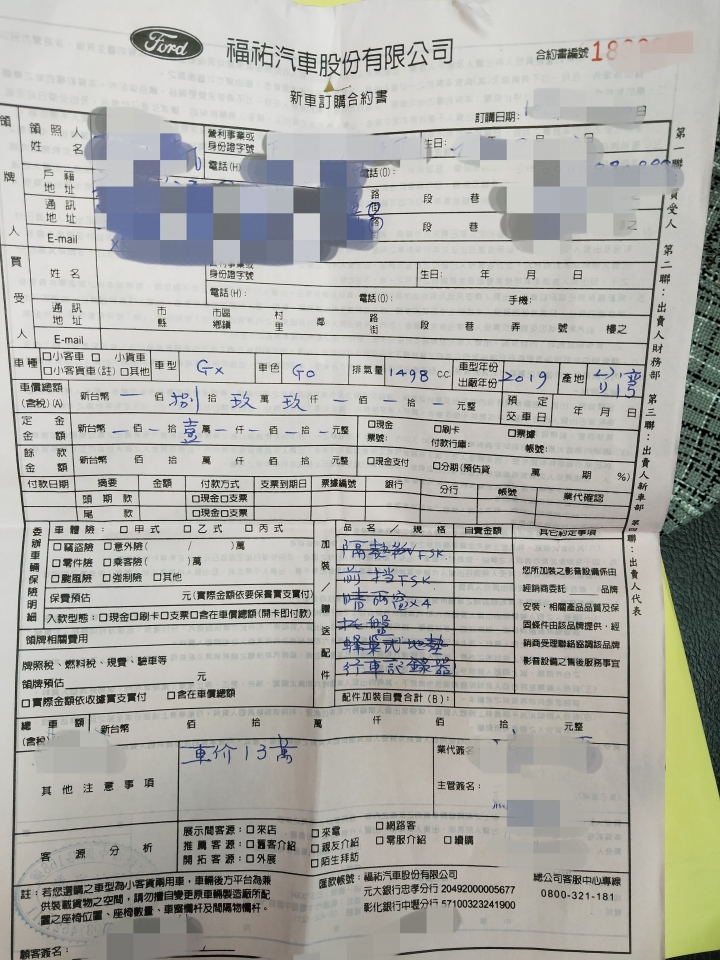 Ford 福祐汽車股份有限公司
合約書編號 18
新車訂購合約書
訂購日期: 日
領牌人
領照人姓名
營利事業或身份證字號
生日:
電話(H)
電話(O):
戶籍地址
路 段 巷
通訊地址
路街 段 巷 之
E-mail
買受人
姓名
身份證字號
生日: 年 月 日
電話(H):
電話(O):
手機:
通訊地址
市縣 市區鄉鎮 村里 鄰 路街 段 巷 弄 號 樓之
E-mail
車種 □小客車 □小貨車 □小客貨車(註) □其他
車型 Gx
車色 GO
排氣量 1498 CC
車型年份 出廠年份 2019
產地 台灣
車價總額(含稅)(A) 新台幣 一 佰 捌 拾 玖 萬 玖 仟 一 佰 一 拾 一 元整
預定交車日 年 月 日
定金金額 新台幣 一 佰 一 拾 壹 萬 一 仟 一 佰 一 拾 一 元整
□現金 □刷卡 □票據
票號: 付款行庫: 帳號:
餘款金額 新台幣 佰 拾 萬 仟 佰 拾 元整
□現金支付 □分期(預估貸 萬 期 %)
付款日期 摘要 金額 付款方式 支票到期日 票據編號 銀行 分行 帳號 業代確認
頭期款 □現金□支票
尾款 □現金□支票
委辦車輛保險明細
車體險: □甲式 □乙式 □丙式
□竊盜險 □意外險( / )萬
□零件險 □乘客險( )萬
□颱風險 □強制險 □其他
保費預估 元(實際金額依要保書實支實付)
入款型態:□現金□刷卡□支票□含在車價總額(開卡即付款)
領牌相關費用
牌照稅、燃料稅、規費、驗車等
領牌預估 元
□實際金額依收據實支實付 □含在車價總額
加裝/贈送配件
品名/規格 自費金額 其它約定事項
隔熱紙FSK
前擋FSK
晴雨窗x4
托盤
蜂巢式地墊
行車記錄器
配件加裝自費合計(B):
您所加裝之影音設備係由
經銷商委託 品牌
安裝,相關產品品質及保
固條件由該品牌提供,經
銷商受理聯絡協調該品牌
影音設備之售後服務事宜
總車額(含稅) 新台幣 佰 拾 萬 仟 佰 拾 元整
其他注意事項
車价13萬
業代簽名
主管簽名:
客源分析
展示間客源:□來店 □來電 □網路客
推薦客源:□舊客介紹 □親友介紹 □零服介紹 □續購
開拓客源:□外展 □陌生拜訪
註:若您選購之車型為小客貨兩用車,車輛後方平台為兼
供裝載貨物之空間,請勿擅自變更原車輛製造廠所配
置之座椅位置、座椅數量、車窗欄杆及間隔物欄杆。
匯款帳號:福祐汽車股份有限公司
元大銀行忠孝分行 20492000005677
彰化銀行中壢分行 57100323241900
總公司客服中心專線
0800-321-181
顧客簽名:
第一聯:買受人 第二聯:出賣人財務部 第三聯:出賣人新車部 第四聯:出賣人代表